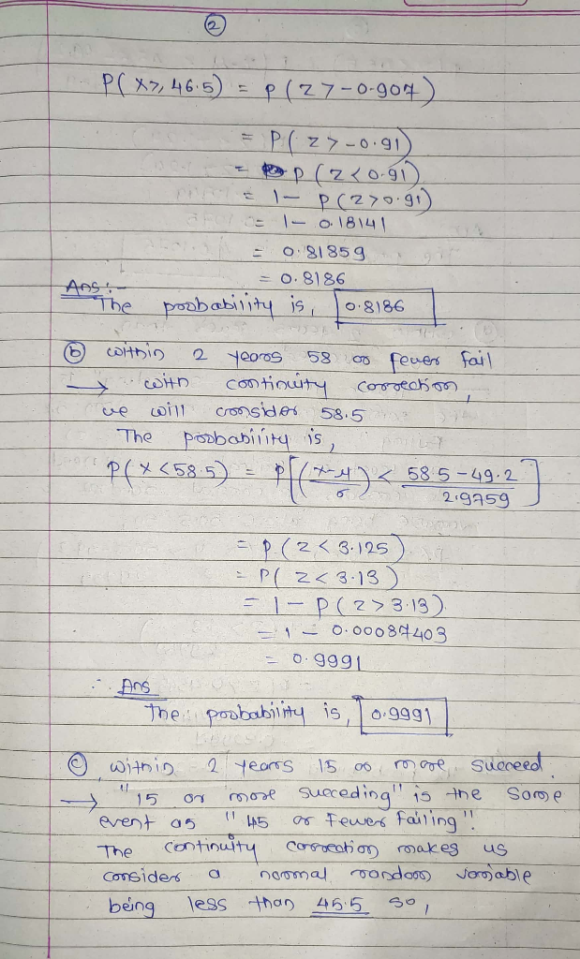 2
P(X≥46.5) = P(Z>-0.907)
= P(Z>-0.91)
= P(Z<0.91)
= 1- P(Z>0.91)
= 1- 0.18141
= 0.81859
= 0.8186
Ans:-
The probability is, 0.8186
(b) within 2 years 58 or fewer fail
→ with continuity correction,
we will consider 58.5
The probability is,
P(X<58.5) = P[(x-μ/σ) < 58.5-49.2/2.9759]
= P(Z<3.125)
= P(Z<3.13)
= 1- P(Z>3.13)
= 1- 0.00087403
= 0.9991
∴ Ans
The probability is, 0.9991
(c) within 2 years 15 or more succeed.
→ "15 or more succeding" is the same
event as "45 or Fewer Failing".
The continuity correction makes us
consider a normal random variable
being less than 45.5 so,